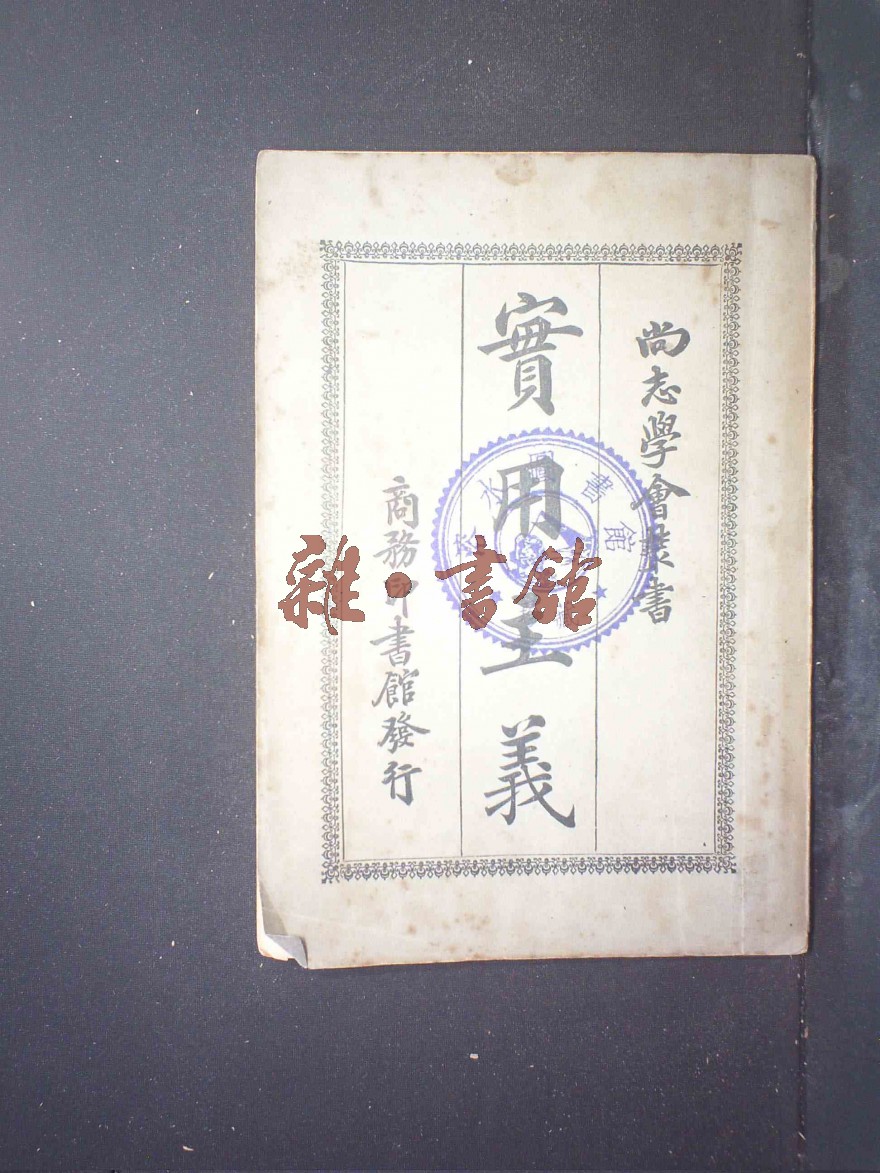 尚志學會叢書
實用主義
商務印書館發行
雜·書館
圖書館